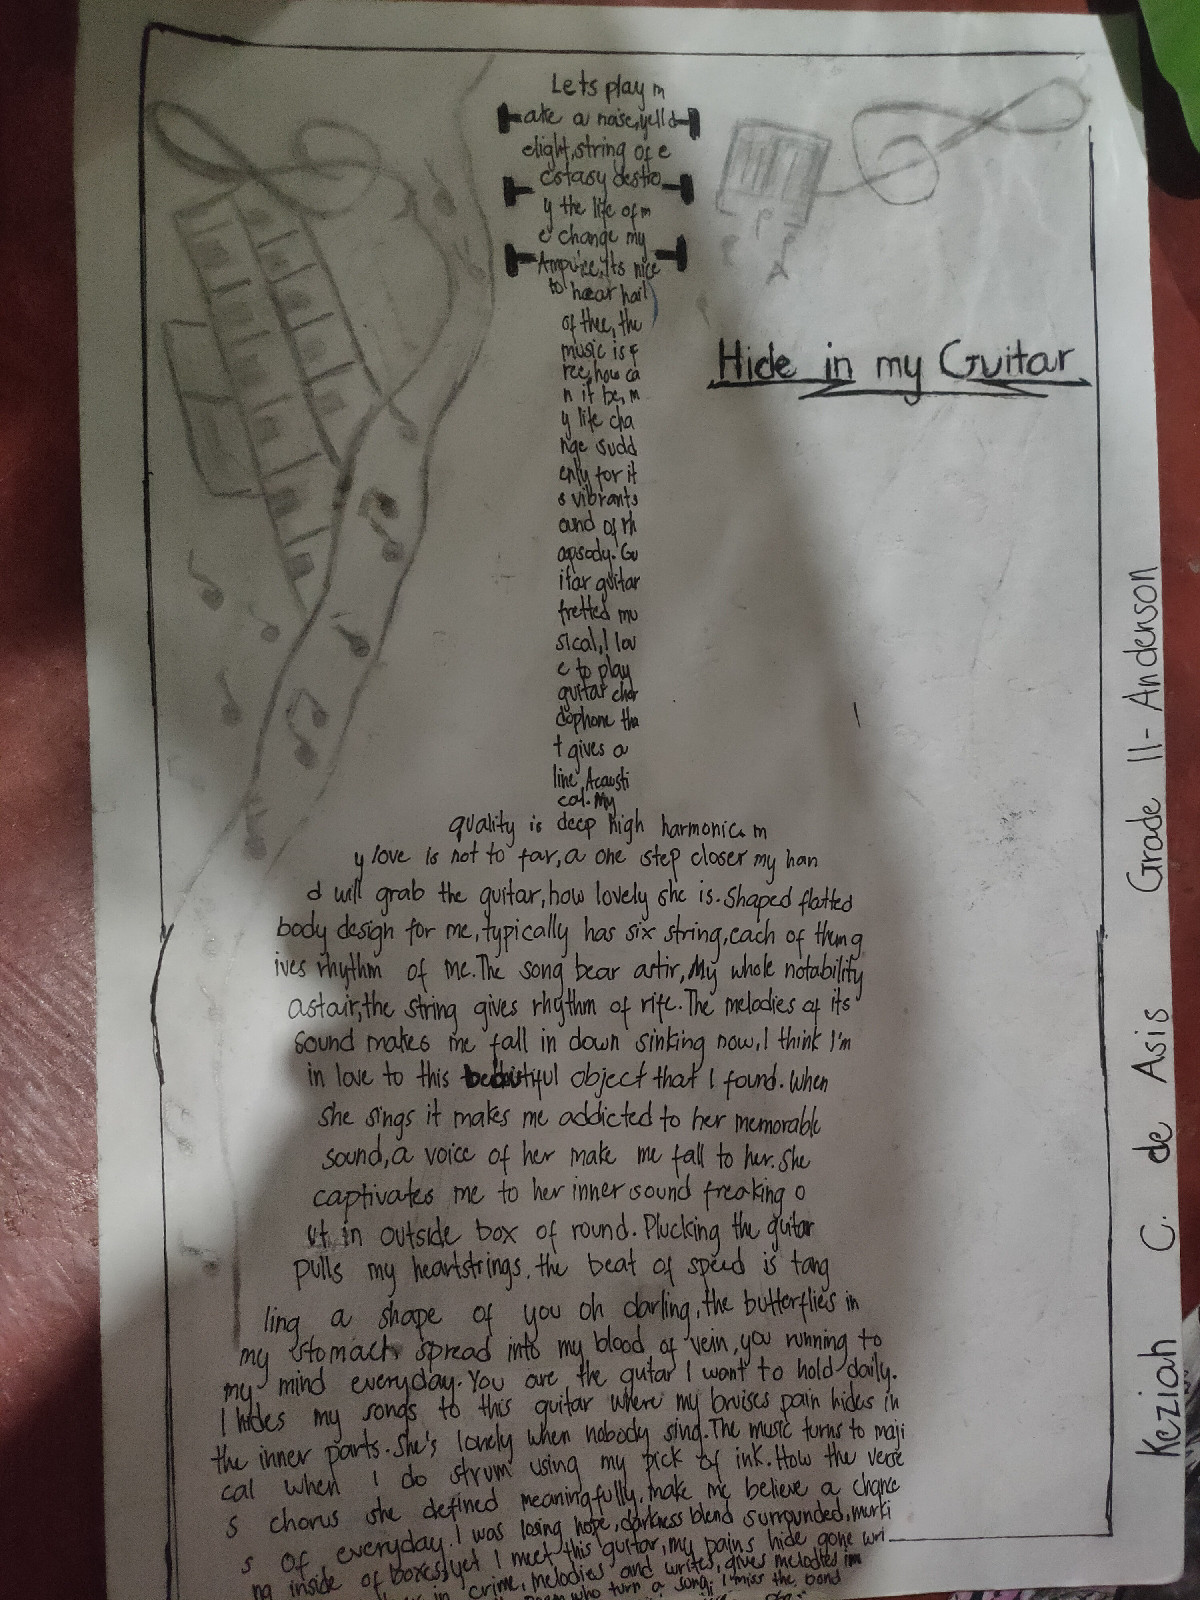 Hide in my Guitar
Lets play m
ake a noise, yell d
elight, string of e
cstasy destro
y the life of m
e change my
to hear hail
of thee, the
music is f
ree, how ca
n it be, m
y life cha
nge sudd
enly for it
s vibrants
ound of rh
apsody. Gu
itar guitar
fretted mu
sical, I lov
e to play
guitar chor
dophone tha
t gives a
line Acousti
cal. My
quality is deep high harmonic. m
y love is not to far, a one step closer my han
d will grab the guitar, how lovely she is. Shaped flatted
body design for me, typically has six string, each of them g
ives rhythm of me. The song bear astir, My whole notability
astair, the string gives rhythm of rife. The melodies of its
sound makes me fall in down sinking now, I think I'm
in love to this beautiful object that I found. When
she sings it makes me addicted to her memorable
sound, a voice of her make me fall to her. She
captivates me to her inner sound freaking o
ut in outside box of round. Plucking the guitar
pulls my heartstrings, the beat of speed is tang
ling a shape of you oh darling, the butterflies in
my stomach spread into my blood of vein, you running to
my mind everyday. You are the guitar I want to hold daily.
I hides my songs to this guitar where my bruises pain hides in
the inner parts. She's lovely when nobody sing. The music turns to maji
cal when I do strum using my pick of ink. How the verse
s chorus she defined meaningfully, make me believe a chance
s of everyday. I was losing hope, darkness blend surrounded, murki
ng inside of boxes, yet I meet this guitar, my pains hide gone wri
in crime, melodies and writes, gives melodies im
who turn a song, I miss the bond
Keziah C. de Asis Grade 11- Anderson